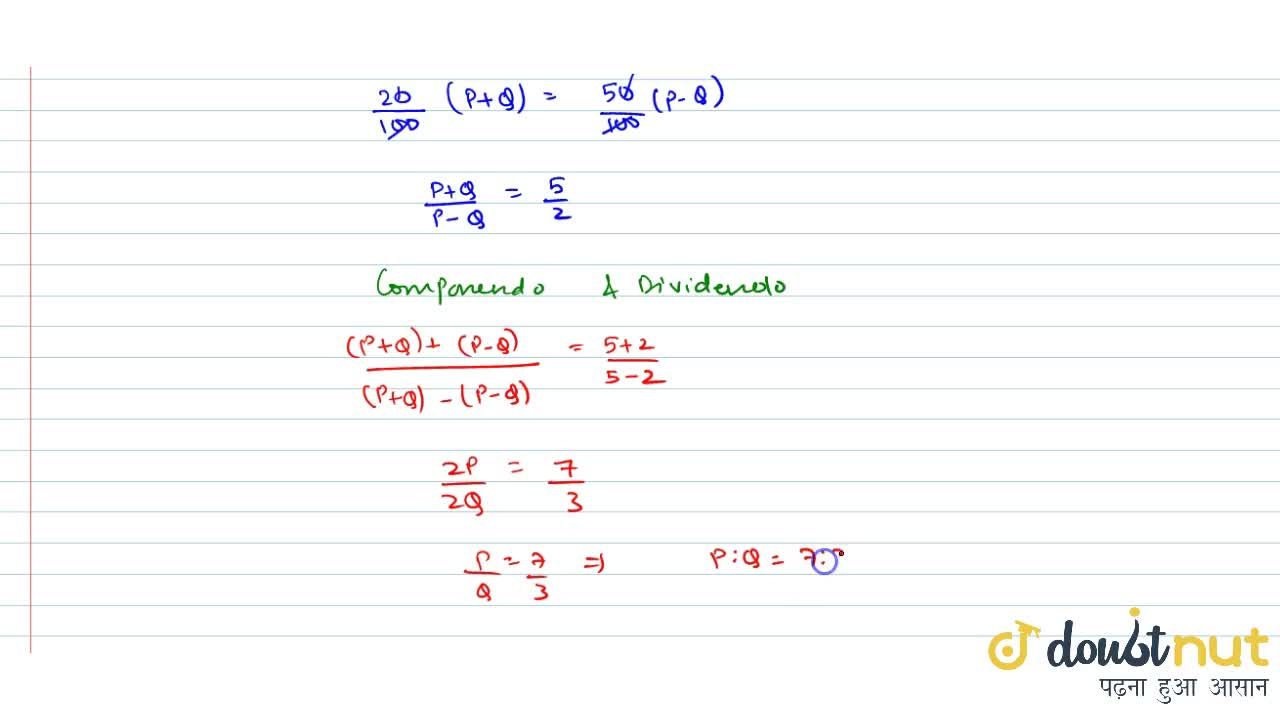 20/100 (P+Q) = 50/100 (P-Q)
P+Q/P-Q = 5/2
Componendo & Dividendo
(P+Q)+(P-Q)/(P+Q)-(P-Q) = 5+2/5-2
2P/2Q = 7/3
P/Q = 7/3 ⇒ P:Q = 7:
doubtnut
पढ़ना हुआ आसान